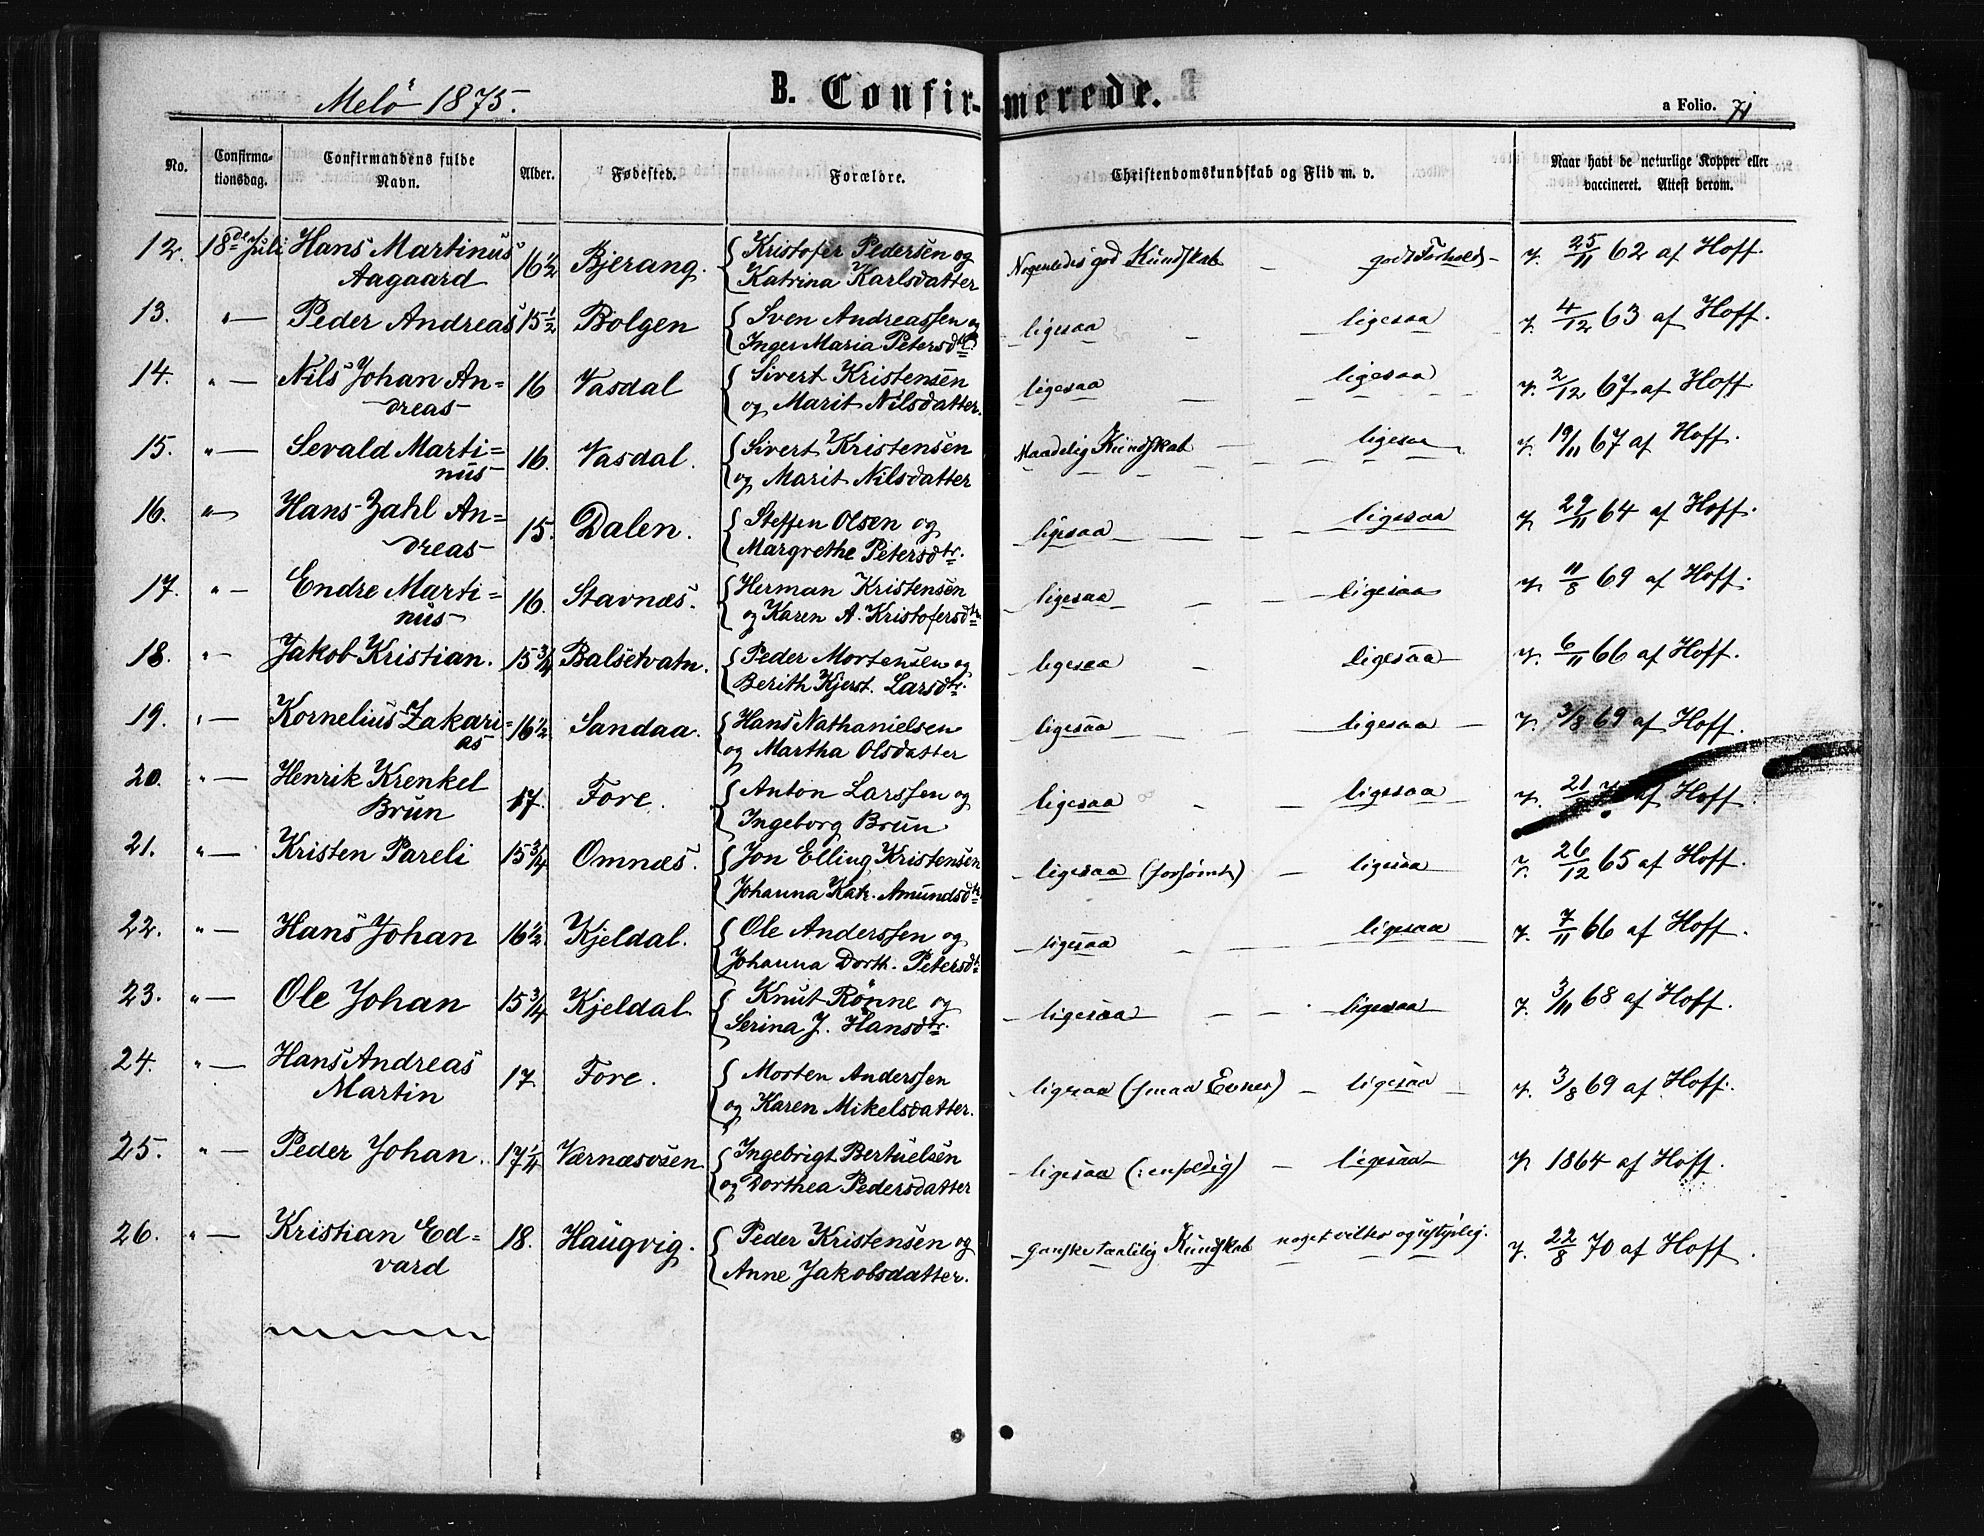 Melö 1875.
B. Confirmerede.
a Folio. 71
No. Confirmationsdag. Confirmandens fulde Navn. Alder. Fødested. Forældre. Christendomskundskab og Flid m. v. Naar havt de naturlige Kopper eller vaccineret. Attest derom.
12. 18de Juli Hans Martinus Aagaard 16½ Bjerang. Kristofer Pedersen og Katrina Karlsdatter Nogenledes god Kundskab godt Forhold v. 25/11 62 af Hoff.
13. " — Peder Andreas 15½ Bolgen Sven Andreassen og Inger Maria Petersdtr ligesaa — ligesaa v. 4/12 63 af Hoff.
14. " — Nils Johan Andreas 16 Vasdal Sivert Kristensen og Marit Nilsdatter. ligesaa — ligesaa v. 2/12 67 af Hoff
15. " — Sevald Martinus 16. Vasdal. Sivert Kristensen og Marit Nilsdatter Maadelig Kundskab — ligesaa v. 19/11 67 af Hoff.
16. " — Hans Zahl Andreas 15. Dalen. Steffen Olsen og Margrethe Petersdtr. ligesaa — ligesaa v. 29/11 64 af Hoff.
17. " — Endre Martinus 16. Stavnæs. Herman Kristensen og Karen A. Kristofersdtr ligesaa — ligesaa v. 11/8 69 af Hoff.
18. " — Jakob Kristian. 15¾ Balsetvatn. Peder Mortensen og Berith Kjerst. Larsdtr. ligesaa — ligesaa v. 6/11 66 af Hoff.
19. " — Kornelius Zakarias 16½ Sandaa. Hans Nathanielsen og Martha Olsdatter ligesaa — ligesaa — v. 3/8 69 af Hoff.
20. " — Henrik Krenkel Brun 17. Fore. Anton Larssen og Ingeborg Brun ligesaa — ligesaa v. 21/8 af Hoff
21. " — Kristen Pareli 15¾ Omnæs. Jon Elling Kristensen Johanna Kat. Amundsdtr ligesaa (forsömt) — ligesaa v. 26/12 65 af Hoff.
22. " — Hans Johan 16½ Kjeldal. Ole Anderssen og Johanna Dorth. Petersdtr ligesaa — ligesaa v. 7/11 66 af Hoff.
23. " — Ole Johan 15¾ Kjeldal Knut Rönne og Serina J. Hansdtr. ligesaa — ligesaa v. 3/11 68 af Hoff.
24. " — Hans Andreas Martin 17 Fore. Morten Anderssen og Karen Mikelsdatter. ligesaa (smaa Evner) — ligesaa v. 3/8 69 af Hoff.
25. " — Peder Johan. 17¼ Værnæsosen Ingebrigt Bertuelsen og Dorthea Pedersdatter ligesaa (: enfoldig) — ligesaa v. 1864 af Hoff.
26. " — Kristian Edvard 18. Haugvig. Peder Kristensen og Anne Jakobsdatter. Ganske taalelig Kundskab noget vilter og ustyrlig. v. 22/8 70 af Hoff.